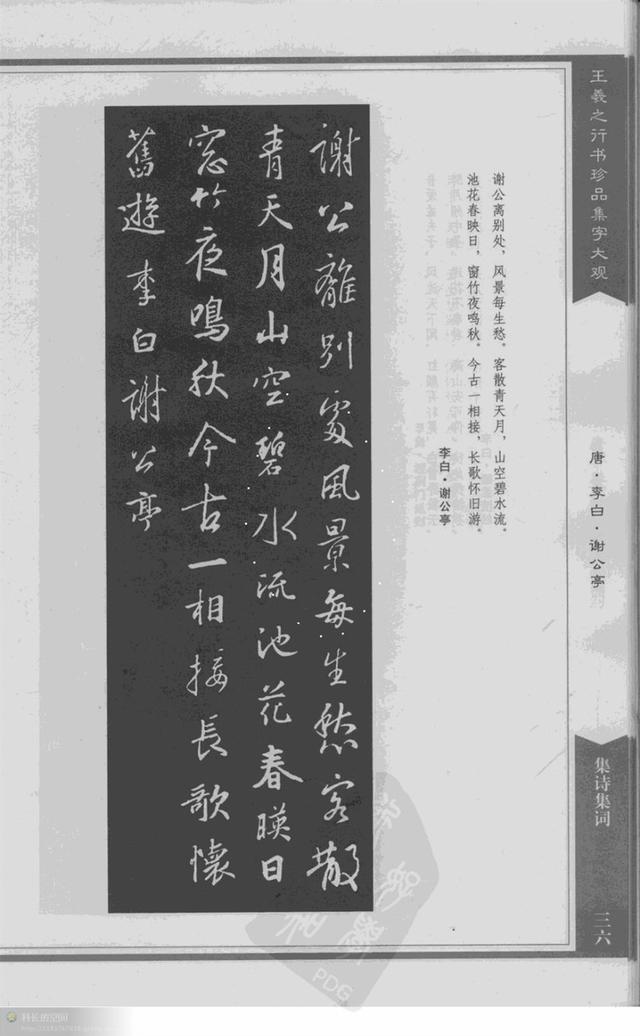 王羲之行书珍品集字大观
唐·李白·谢公亭
集诗集词
三六
谢公离别处，风景每生愁。客散青天月，山空碧水流。
池花春映日，窗竹夜鸣秋。今古一相接，长歌怀旧游。
李白·谢公亭
謝公離別處風景每生愁客散
青天月山空碧水流池花春暎日
窓竹夜鳴秋今古一相接長歌懷
舊遊李白謝公亭
PDG
科长的空间